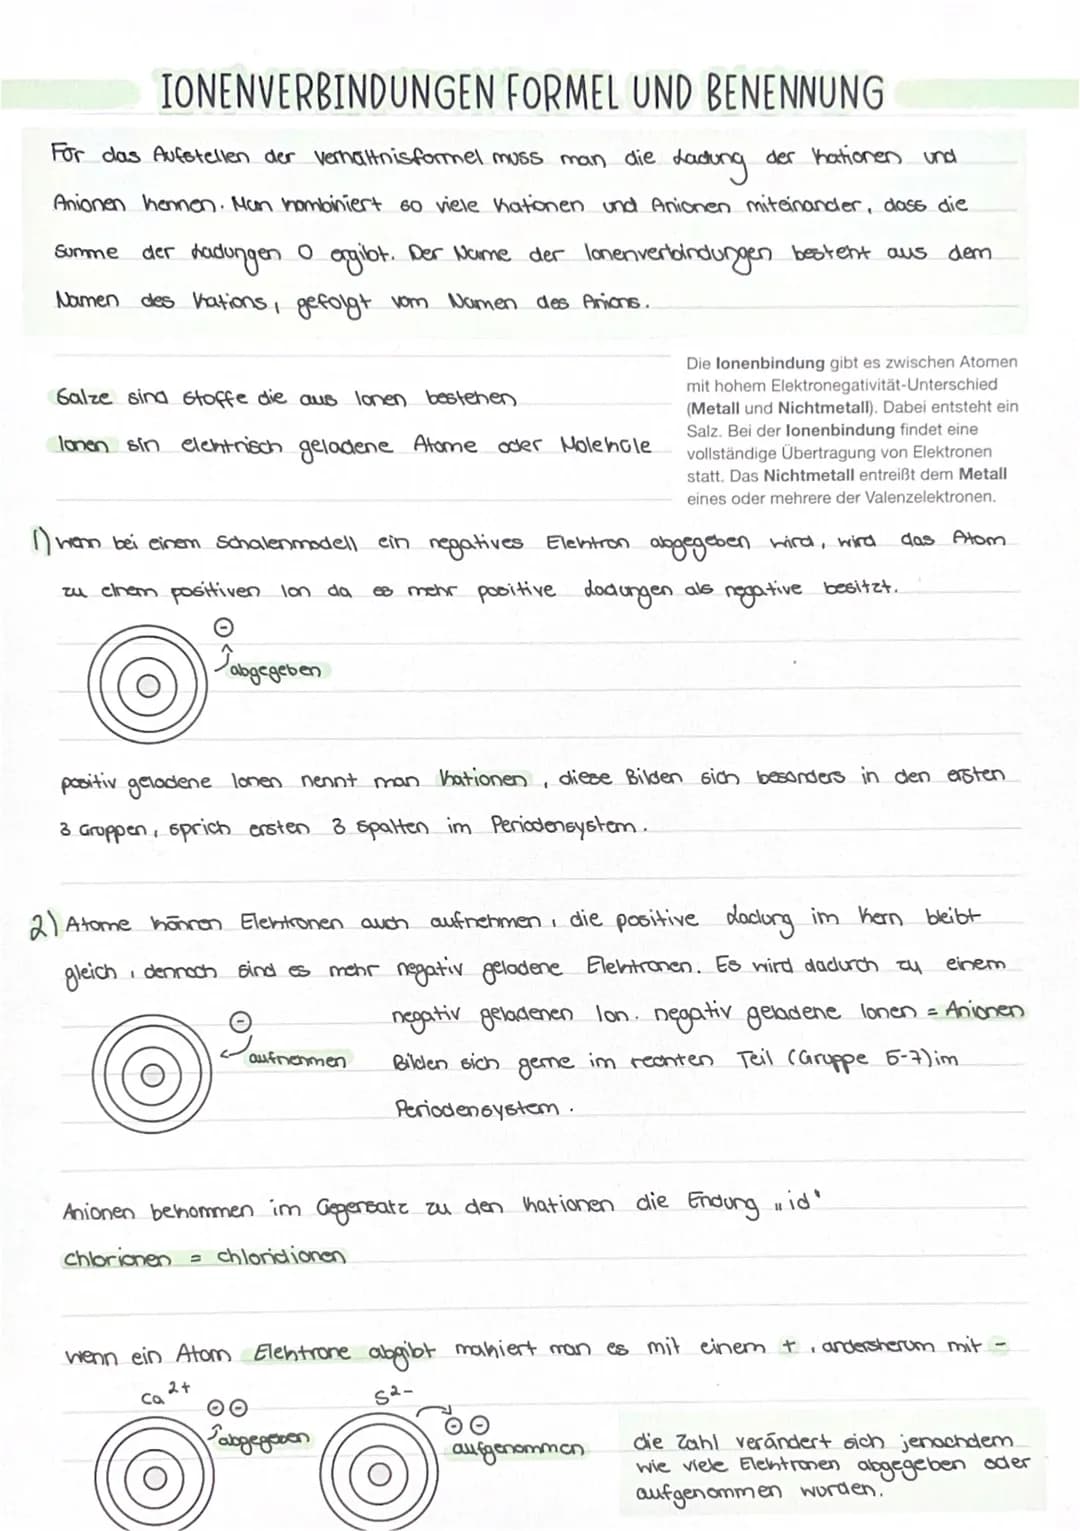 IONENVERBINDUNGEN FORMEL UND BENENNUNG
Für das Aufstellen der Verhältnisformel muss man die Ladung der Kationen und
Anionen kennen. Man kombiniert so viele Kationen und Anionen miteinander, dass die
Summe der Ladungen 0 ergibt. Der Name der Ionenverbindungen besteht aus dem
Namen des Kations, gefolgt vom Namen des Anions.
Salze sind Stoffe die aus Ionen bestehen
Ionen sin elektrisch geladene Atome oder Moleküle
Die Ionenbindung gibt es zwischen Atomen
mit hohem Elektronegativität-Unterschied
(Metall und Nichtmetall). Dabei entsteht ein
Salz. Bei der Ionenbindung findet eine
vollständige Übertragung von Elektronen
statt. Das Nichtmetall entreißt dem Metall
eines oder mehrere der Valenzelektronen.
1) wenn bei einem Schalenmodell ein negatives Elektron abgegeben wird, wird das Atom
zu einem positiven Ion da es mehr positive Ladungen als negative besitzt.
⊖
abgegeben
positiv geladene Ionen nennt man Kationen, diese Bilden sich besonders in den ersten
3 Gruppen, sprich ersten 3 Spalten im Periodensystem.
2) Atome können Elektronen auch aufnehmen, die positive Ladung im Kern bleibt
gleich, dennoch sind es mehr negativ geladene Elektronen. Es wird dadurch zu einem
negativ geladenen Ion. negativ geladene Ionen = Anionen
⊖
aufnehmen
Bilden sich gerne im rechten Teil (Gruppe 5-7) im
Periodensystem.
Anionen bekommen im Gegensatz zu den Kationen die Endung „id"
Chlorionen = Chloridionen
wenn ein Atom Elektrone abgibt makiert man es mit einem +, andersherum mit -
Ca 2+
⊖⊖
abgegeben
S 2-
⊖⊖
aufgenommen
die Zahl verändert sich jenachdem
wie viele Elektronen abgegeben oder
aufgenommen wurden.